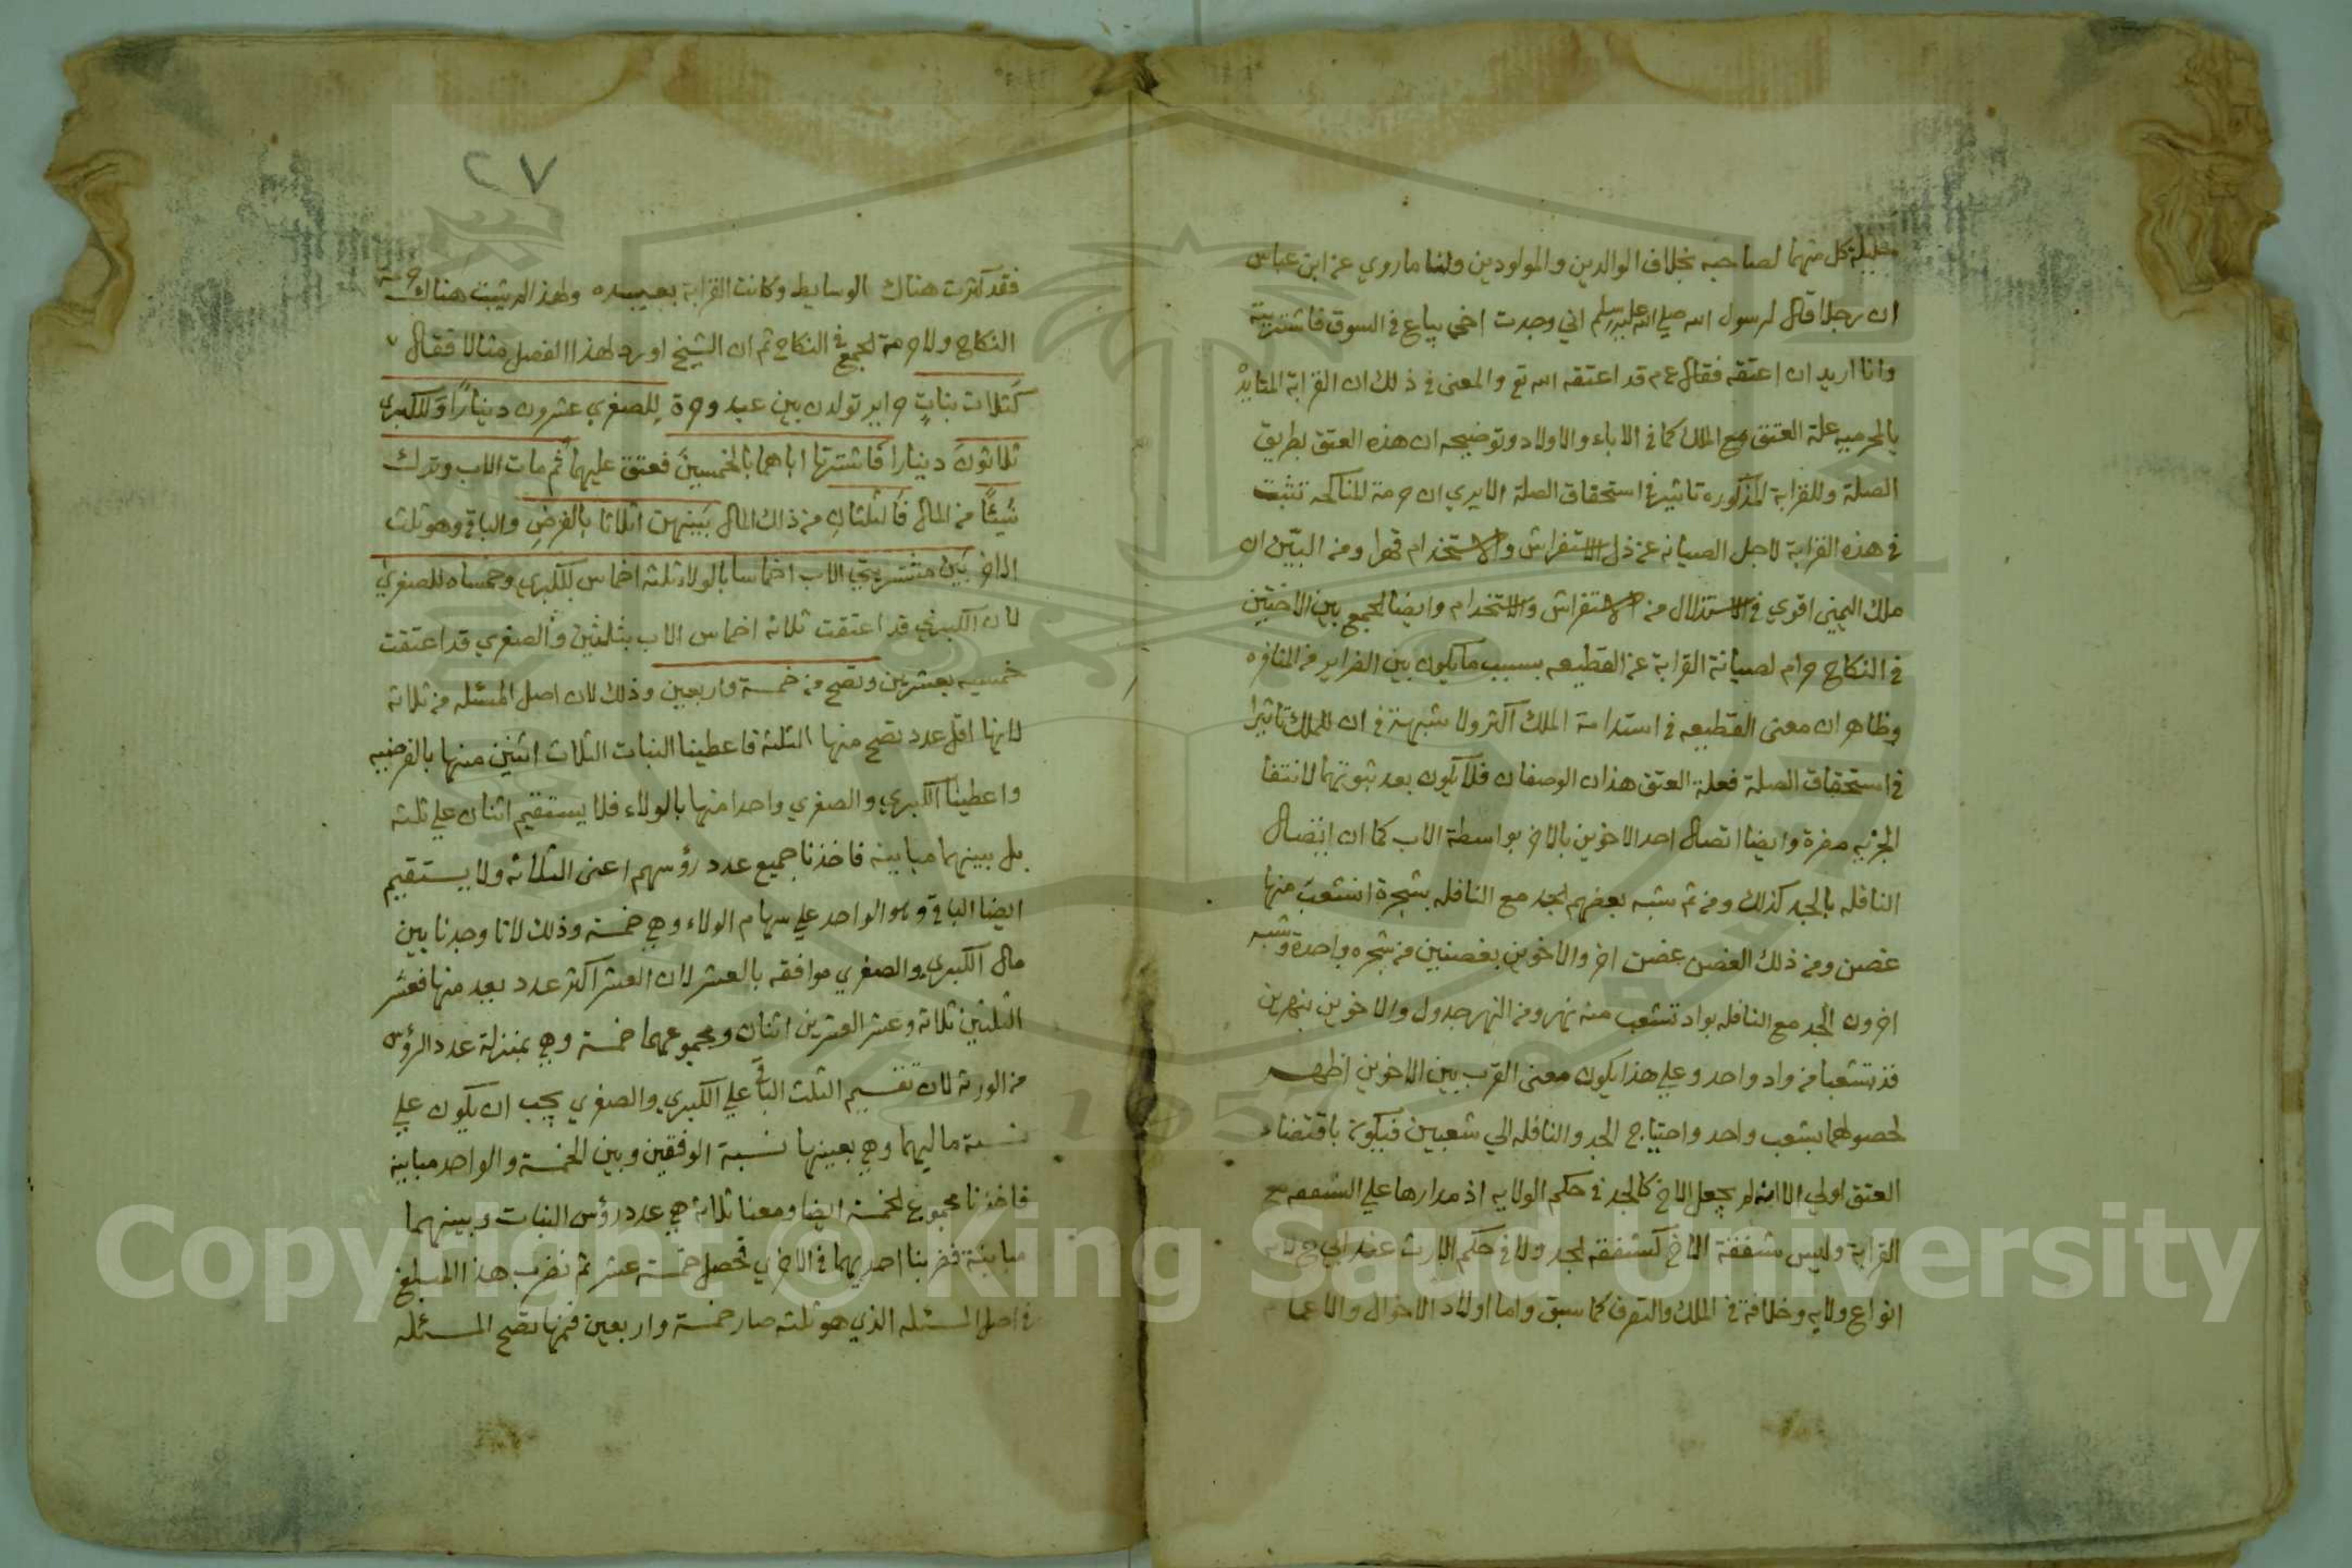 حليلة كل منهما لصاحبه بخلاف الوالدين والمولودين ولنا ما روي عن ابن عباس
ان رجلا قال لرسول الله صلي الله عليه وسلم اني وجدت اخي يباع في السوق فاشتريته
وانا اريد ان اعتقه فقال عم قد اعتقه الله تع والمعنى في ذلك ان القرابة المتايد
بالمحرميه علة العتق مع الملك كما في الاباء والاولاد وتوضيحه ان هذه العتق بطريق
الصلة وللقرابة المذكوره تاثير في استحقاق الصلة الا يري ان حرمة المناكحه تثبت
في هذه القرابة لاجل الصيانه عن ذل الاستفراش والاستخدام قهرا ومن البيّن ان
ملك اليمين اقوي في الاستذلال من الاستفراش والاستخدام وايضا الجمع بين الاختين
في النكاح حرام لصيانة القرابة عن القطيعه بسبب ما يكون بين الضراير من المنافره
وظاهر ان معنى القطيعه في استدامة الملك اكثر ولا شبهة في ان للملك تاثيرا
في استحقاق الصلة فعلة العتق هذان الوصفان فلا يكون بعد ثبوتهما لانتفا
الجزئيه مضرة وايضا اتصال احد الاخوين بالاخر بواسطة الاب كما ان اتصال
النافله بالجد كذلك ومن ثم شبه بعضهم الجد مع النافله بشجرة انشعب منها
غصن ومن ذلك الغصن غصن اخر والاخوين بغصنين من شجره واحدة وشبه
اخرون الجد مع النافله بواد تشعب منه نهر ومن النهر جدول والاخوين بنهرين
قد تشعبا من واد واحد وعلي هذا يكون معنى القرب بين الاخوين اظهر
لحصولهما بشعب واحد واحتياج الجد والنافله الي شعبين فيكون باقتضاء
العتق اولي الا انه لم يجعل الاخ كالجد في حكم الولايه اذ مدارها علي الشفقه مع
القرابة وليس شفقة الاخ كشفقه الجد ولا في حكم الارث عند ابي ح
انواع ولايه وخلافة في الملك والتصرف كما سبق واما اولاد الاخوال والاعمام
٢٧
فقد كثرت هناك الوسايط وكانت القرابة بعيده ولهذا لم يثبت هناك حرمة
النكاح ولا حرمة الجمع في النكاح ثم ان الشيخ اورد لهذا الفصل مثالا فقال
كثلاث بنات حراير تولدن بين عبد وحرة للصغري عشرون دينارا وللكبري
ثلاثون دينارا فاشترتا اباهما بالخمسين فعتق عليهما ثم مات الاب وترك
شيئًا من المال فالثلثان من ذلك المال بينهن اثلاثا بالفرض والباقي وهو ثلث
المال بين مشتريتي الاب اخماسا بالولاء ثلثة اخماس للكبري وخمساه للصغري
لان الكبري قد اعتقت ثلاثه اخماس الاب بثلثين والصغري قد اعتقت
خمسيه بعشرين وتصح من خمسة واربعين وذلك لان اصل المسئله من ثلاثة
لانها اقل عدد تصح منها الثلثه فاعطينا البنات الثلاث اثنين منها بالفرضيه
واعطينا الكبري والصغري واحدا منها بالولاء فلا يستقيم اثنان علي ثلثه
بل بينهما مباينه فاخذنا جميع عدد رؤسهم اعنى الثلاثه ولا يستقيم
ايضا الباقي وهو الواحد علي سهام الولاء وهي خمسة وذلك لانا وجدنا بين
مال الكبري والصغري موافقه بالعشر لان العشر اكثر عدد يعد منها فعشر
الثلثين ثلاثة وعشر العشرين اثنان ومجموعهما خمسة وهي بمنزلة عدد الرؤس
من الورثة لان تقسيم الثلث الباقي علي الكبري والصغري يجب ان يكون علي
نسبة ماليهما وهي بعينها نسبة الوفقين وبين الخمسة والواحد مباينة
فاخذنا مجموع الخمسة ايضا ومعنا ثلاثة هي عدد رؤس البنات وبينهما
مباينة فضربنا احديهما في الاخري تحصل خمسة عشر ثم نضرب هذا المبلغ
في اصل المسئله الذي هو ثلثه صار خمسة واربعين فمنها تصح المسئله
Copyright © King Saud University
1957